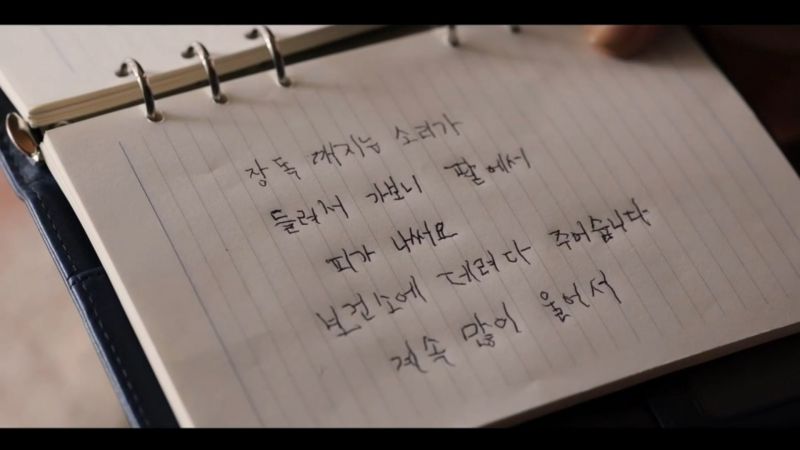 장독 깨지는 소리가
들려서 가보니 팔에서
피가 나써요
보건소에 데려다 주어습니다
계속 많이 울어서